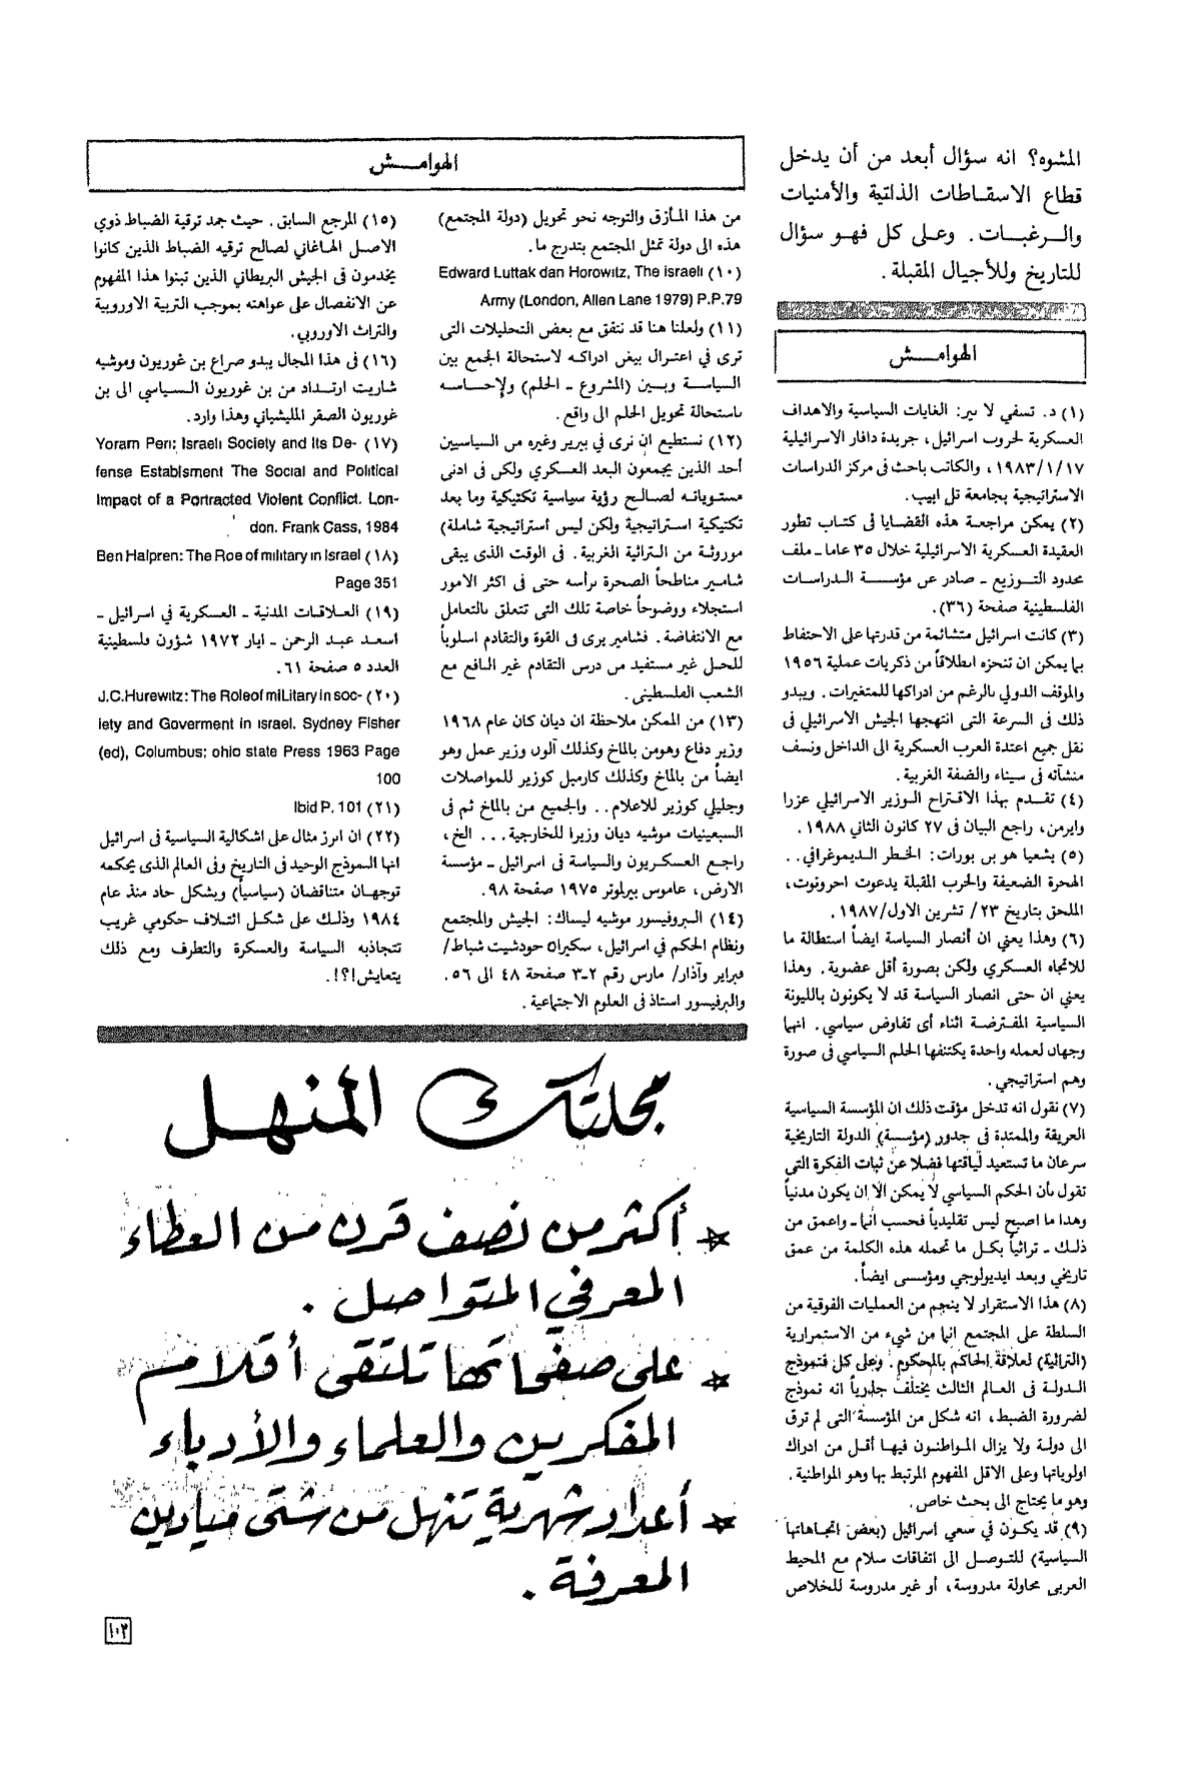 المشوه؟ انه سؤال أبعد من أن يدخل
قطاع الاسقـاطات الذاتية والأمنيات
والـرغبـات. وعـلى كل فهـو سؤال
للتاريخ وللأجيال المقبلة.
الهوامــش
(١) د. تسفي لا نير: الغايات السياسية والاهداف
العسكرية لحروب اسرائيل، جريدة دافار الاسرائيلية
١٩٨٣/١/١٧، والكاتب باحث فى مركز الدراسات
الاستراتيجية بجامعة تل ابيب.
(٢) يمكن مراجعة هذه القضايا فى كتاب تطور
العقيدة العسكرية الاسرائيلية خلال ٣٥ عاما ـ ملف
محدود التـوزيع ـ صادر عن مؤسسـة الـدراسـات
الفلسطينية صفحة (٣٦).
(٣) كانت اسرائيل متشائمة من قدرتها على الاحتفاظ
بما يمكن ان تنجزه انطلاقاً من ذكريات عملية ١٩٥٦
والموقف الدولي بالرغم من ادراكها للمتغيرات. ويبدو
ذلك فى السرعة التى انتهجها الجيش الاسرائيلي فى
نقل جميع اعتدة العرب العسكرية الى الداخل ونسف
منشآته فى سيناء والضفة الغربية.
(٤) تقـدم بهذا الاقتراح الـوزير الاسرائيلي عزرا
وايزمن، راجع البيان فى ٢٧ كانون الثاني ١٩٨٨.
(٥) يشعيا هو بن بورات: الخـطر الـديموغرافي..
الهجرة الضعيفة والحرب المقبلة يدعوت احرونوت،
الملحق بتاريخ ٢٣/ تشرين الاول/١٩٨٧.
(٦) وهذا يعني ان أنصار السياسة ايضاً استطالة ما
للاتجاه العسكري ولكن بصورة أقل عضوية. وهذا
يعني ان حتى انصار السياسة قد لا يكونون بالليونة
السياسية المفترضـة اثناء أى تفاوض سياسي. انها
وجهان لعمله واحدة يكتنفها الحلم السياسي فى صورة
وهم استراتيجي.
(٧) نقول انه تدخل مؤقت ذلك ان المؤسسة السياسية
العريقة والممتدة فى جدور (مؤسسة) الدولة التاريخية
سرعان ما تستعيد لياقتها فضلا عن ثبات الفكرة التى
تقول بأن الحكم السياسي لا يمكن الا ان يكون مدنياً
وهدا ما اصبح ليس تقليدياً فحسب انما ـ واعمق من
ذلـك ـ تراثياً بكـل ما تحمله هذه الكلمة من عمق
تاريخي وبعد ايديولوجي ومؤسسى ايضاً.
(٨) هذا الاستقرار لا ينجم من العمليات الفوقية من
السلطة على المجتمع انما من شيء من الاستمرارية
(التراثية) لعلاقة الحاكم بالمحكوم. وعلى كل فنموذج
الـدولـة فى العـالم الثالث يختلف جذرياً انه نموذج
لضرورة الضبط، انه شكل من المؤسسة التى لم ترق
الى دولة ولا يزال المـواطنـون فيهـا أقـل من ادراك
اولوياتها وعلى الاقل المفهوم المرتبط بها وهو المواطنية.
وهو ما يحتاج الى بحث خاص.
(٩) قد يكـون في سعي اسرائيل (بعض اتجـاهاتها
السياسية) للتـوصـل الى اتفاقات سلام مع المحيط
العربى محاولة مدروسة، أو غير مدروسة للخلاص
الهوامــش
من هذا المأزق والتوجه نحو تحويل (دولة المجتمع)
هذه الى دولة تمثل المجتمع بتدرج ما.
(١٠) Edward Luttak dan Horowitz, The israeli
Army (London, Allen Lane 1979) P.P.79
(١١) ولعلنا هنا قد نتفق مع بعض التحليلات التى
ترى في اعتـزال بيغن ادراكـه لاستحالة الجمع بين
السيـاسـة وبـين (المشروع ـ الحلم) ولإحـسـاسـه
باستحالة تحويل الحلم الى واقع.
(١٢) نستطيع ان نرى في بيريز وغيره من السياسيين
أحد الذين يجمعون البعد العسكري ولكن فى ادنى
مستـوياتـه لصالـح رؤية سياسية تكتيكية وما بعد
تكتيكية استراتيجية ولكن ليس استراتيجية شاملة)
موروثـة من التراثية الغربية. فى الوقت الذى يبقى
شامـير مناطحاً الصخرة برأسه حتى فى اكثر الامور
استجلاء ووضوحاً خاصة تلك التى تتعلق بالتعامل
مع الانتفاضة. فشامير يرى فى القوة والتقادم اسلوباً
للحـل غير مستفيد من درس التقادم غير النافع مع
الشعب الفلسطيني.
(١٣) من الممكن ملاحظة ان ديان كان عام ١٩٦٨
وزير دفاع وهومن بالماخ وكذلك آلون وزير عمل وهو
ايضاً من بالماخ وكذلك كارميل كوزير للمواصلات
وجليلي كوزير للاعلام.. والجميع من بالماخ ثم فى
السبعينيات موشيه ديان وزيرا للخارجية... الخ،
راجـع العسكـريون والسياسة فى اسرائيل ـ مؤسسة
الارض، عاموس بيرلموتر ١٩٧٥ صفحة ٩٨.
(١٤) الـبروفيسور موشيه ليساك: الجيش والمجتمع
ونظام الحكم في اسرائيل، سكيراة حودشيت شباط/
فبراير وآذار/ مارس رقم ٢-٣ صفحة ٤٨ الى ٥٦.
والبرفيسور استاذ فى العلوم الاجتماعية.
(١٥) المرجع السابق. حيث جمد ترقية الضباط ذوي
الاصـل الهـاغاني لصالح ترقيه الضباط الذين كانوا
يخدمون فى الجيش البريطاني الذين تبنوا هذا المفهوم
عن الانفصال على عواهنه بموجب التربية الاوروبية
والتراث الاوروبي.
(١٦) فى هذا المجال يبدو صراع بن غوريون وموشيه
شاريت ارتـداد من بن غوريون الـسـياسي الى بن
غوريون الصقر المليشياني وهذا وارد.
(١٧) Yoram Peri; Israeli Society and Its De-
fense Establsment The Social and Political
Impact of a Portracted Violent Conflict. Lon-
don. Frank Cass, 1984
(١٨) Ben Halpren: The Roe of military in Israel
Page 351
(١٩) العـلاقـات المدنية ـ العسكرية في اسرائيل ـ
اسعـد عبـد الرحمن ـ ايار ١٩٧٢ شؤون فلسطينية
العدد ٥ صفحة ٦١.
(٢٠) J.C.Hurewitz: The Roleof miLitary in soc-
iety and Goverment in israel. Sydney Fisher
(ed), Columbus: ohio state Press 1963 Page
100
(٢١) Ibid P. 101
(٢٢) ان ابرز مثال على اشكالية السياسية فى اسرائيل
انها النموذج الوحيد فى التاريخ وفى العالم الذى يحكمه
توجهـان متناقضان (سياسياً) وبشكل حاد منذ عام
١٩٨٤ وذلـك على شكـل ائتـلاف حكومي غريب
تتجاذبه السياسة والعسكرة والتطرف ومع ذلك
يتعايش!؟!.
مجلتك المنهل
* أكثر من نصف قرن من العطاء
المعرفي المتواصل.
* على صفحاتها تلتقى أقلام
المفكرين والعلماء والأدباء
* أعداد شهرية تنهل من شتى ميادين
المعرفة.
١٠٣